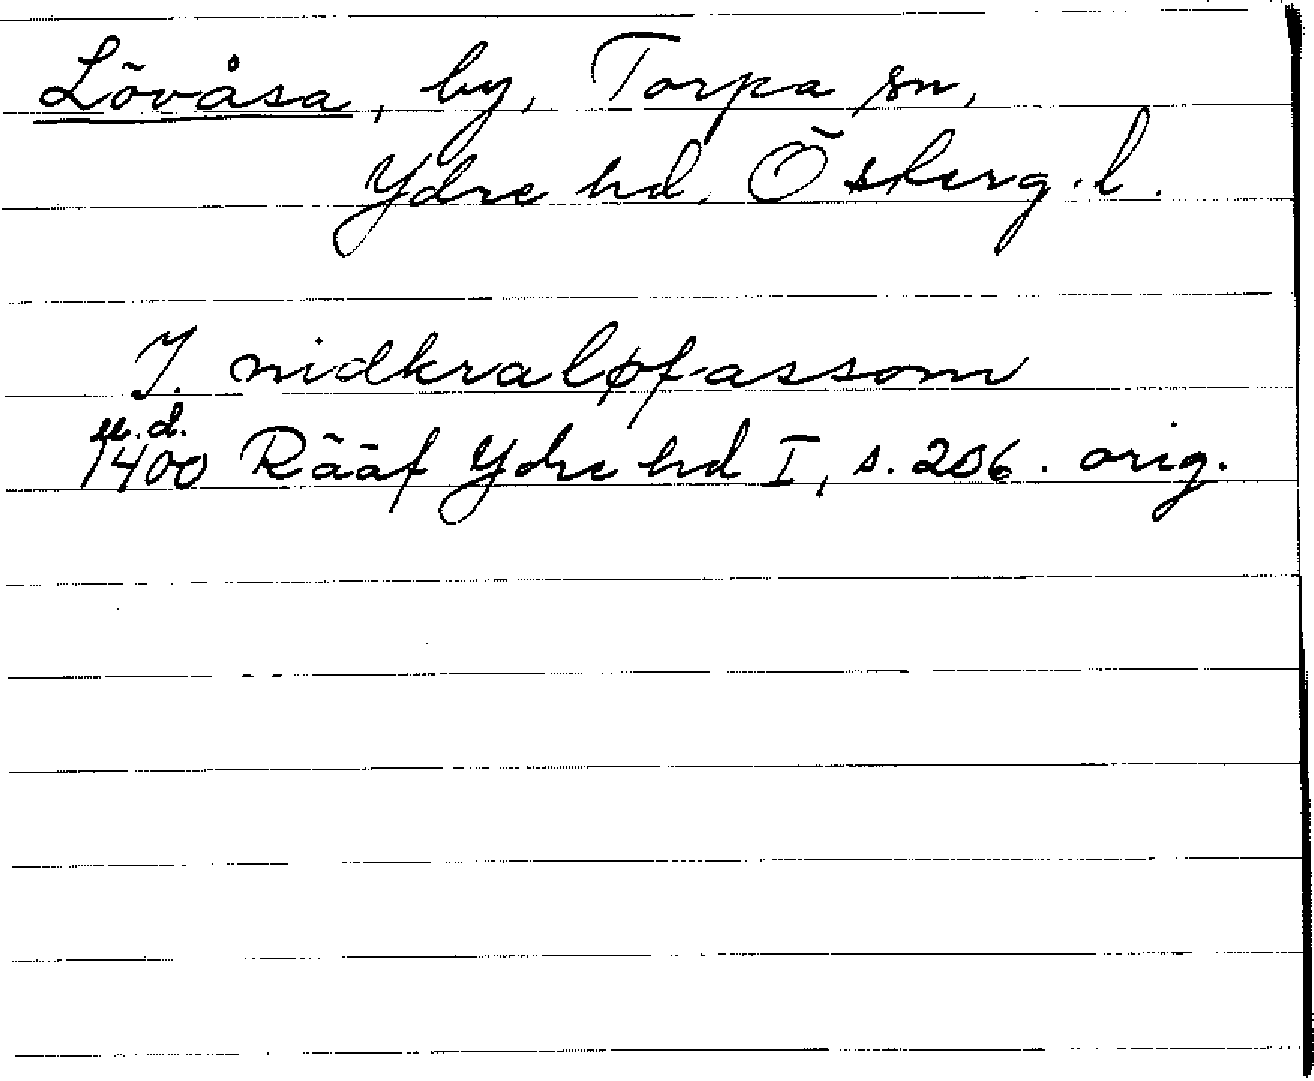 Lövåsa, by, Torpa sn,
Ydre hd, Österg. l.
J. nidkraløfassom
u.d.
1400 Rääf Ydre hd I, s. 206. orig.